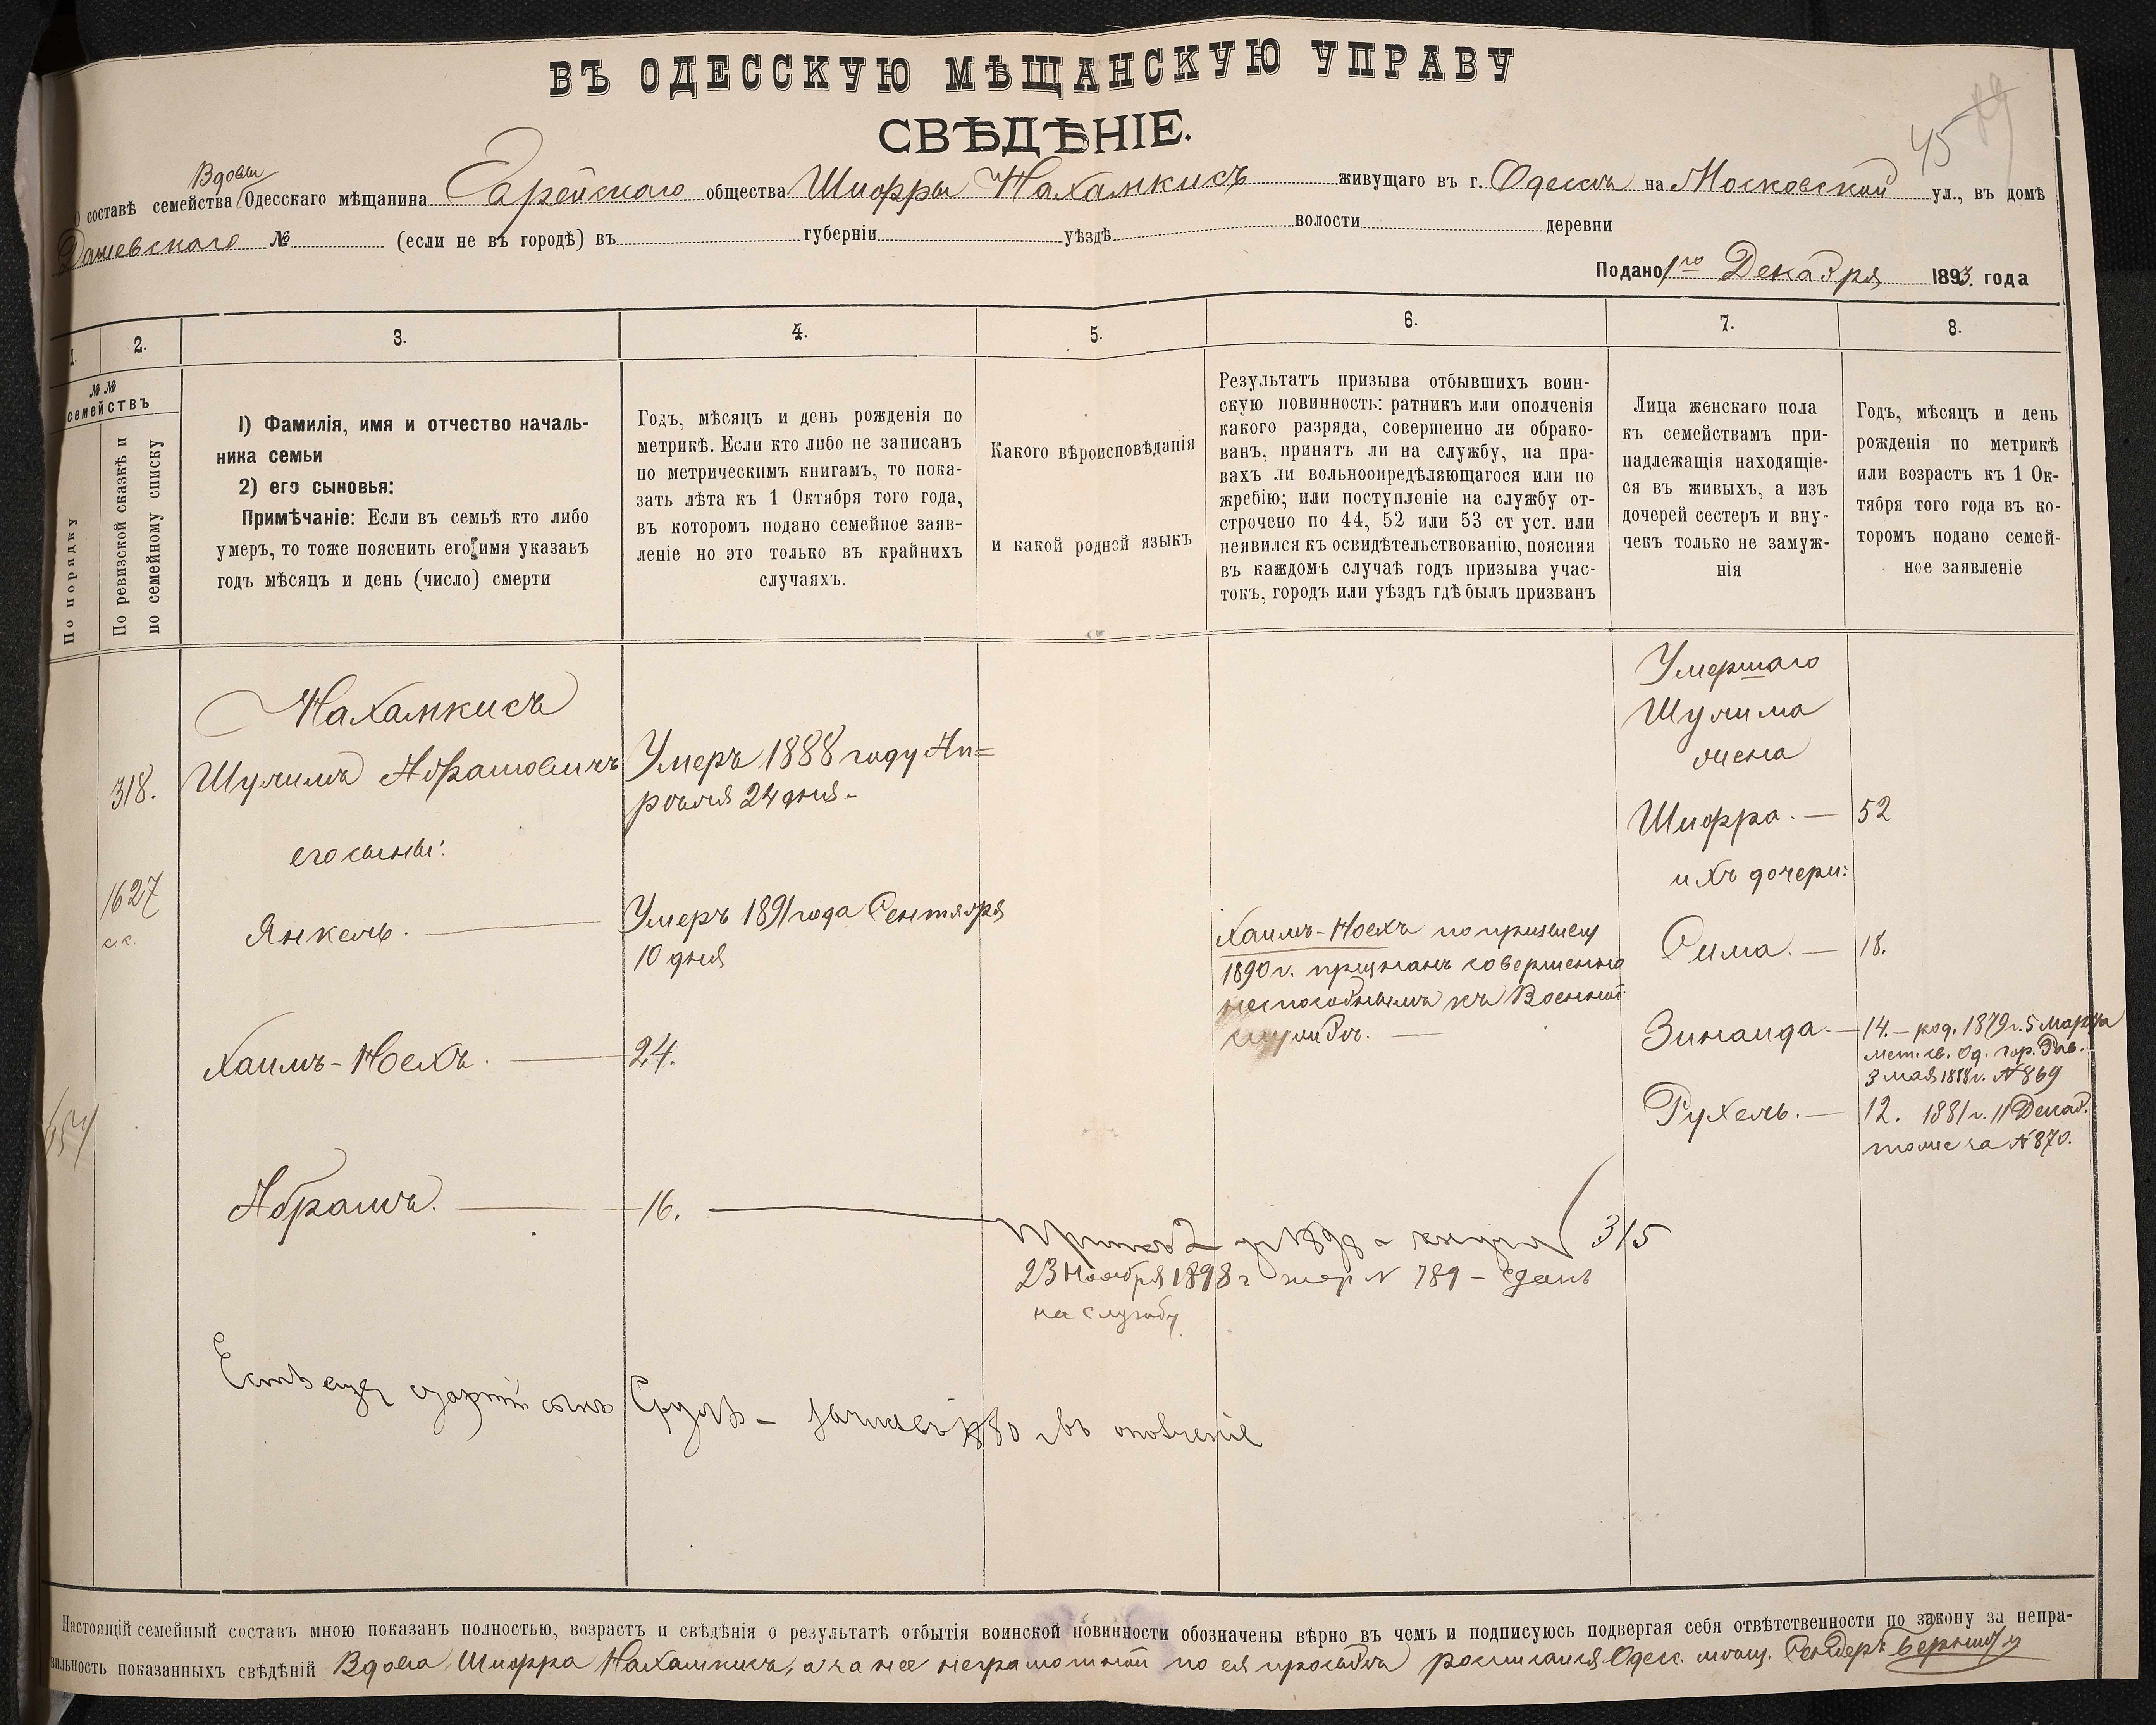 ВЪ ОДЕССКУЮ МѢЩАНСКУЮ УПРАВУ
СВѢДѢНІЕ.
45
Вдовы
О составѣ семейства Одесскаго мѣщанина Еврейскаго общества Шифры Нахамкисъ живущаго въ г. Одессѣ на Московской ул., въ домѣ
Дашевскаго № (если не въ городѣ) въ губерніи уѣздѣ волости деревни
Подано 1го Декабря 1893 года
1. 2. 3. 4. 5. 6. 7. 8.
№№ семействъ
По порядку
По ревизской сказкѣ и
по семейному списку
1) Фамилія, имя и отчество началь-
ника семьи
2) его сыновья:
Примѣчаніе: Если въ семьѣ кто либо
умеръ, то тоже пояснить его имя указавъ
годъ мѣсяцъ и день (число) смерти
Годъ, мѣсяцъ и день рожденія по
метрикѣ. Если кто либо не записанъ
по метрическимъ книгамъ, то пока-
зать лѣта къ 1 Октября того года,
въ которомъ подано семейное заяв-
леніе но это только въ крайнихъ
случаяхъ.
Какого вѣроисповѣданія
и какой родной языкъ
Результатъ призыва отбывшихъ воин-
скую повинность: ратникъ или ополченія
какого разряда, совершенно ли обрако-
ванъ, принятъ ли на службу, на пра-
вахъ ли вольноопредѣляющагося или по
жребію; или поступленіе на службу от-
строчено по 44, 52 или 53 ст уст. или
неявился къ освидѣтельствованію, поясняя
въ каждомъ случаѣ годъ призыва учас-
токъ, городъ или уѣздъ гдѣ былъ призванъ
Лица женскаго пола
къ семействамъ при-
надлежащія находящіе-
ся въ живыхъ, а изъ
дочерей сестеръ и вну-
чекъ только не замуж-
нія
Годъ, мѣсяцъ и день
рожденія по метрикѣ
или возрастъ къ 1 Ок-
тября того года въ ко-
торомъ подано семей-
ное заявленіе
318.
1627
с.с.
Нахамкисъ
Шулимъ Абрамовичъ
Умеръ 1888 году Ап=
рѣля 24 дня.-
его сыны:
Янкель. —
Умеръ 1891 года Сентября
10 дня
Хаимъ-Ноехъ. — 24.
Хаимъ-Ноехъ по призыву
1890 г. признанъ совершенно
неспособнымъ къ Военной
службѣ. —
Абрамъ. — 16. —
315
23 Ноября 1898 г № 789 - сданъ
на службу
Есть еще старшій сынъ Сруль - 1880 въ ополченіе
Умершаго
Шулима
жена
Шифра. — 52
ихъ дочери:
Сима. — 18.
Зинаида. — 14. - род. 1879 г. 5 Марта
мет. св. Од. гор. Рав.
3 мая 1888 г. № 869
Рухель. — 12. 1881 г. 11 Декаб.
тоже за № 870.
Настоящій семейный составъ мною показанъ полностью, возрастъ и свѣдѣнія о результатѣ отбытія воинской повинности обозначены вѣрно въ чемъ и подписуюсь подвергая себя отвѣтственности по закону за непра-
вильность показанныхъ свѣдѣній Вдова Шифра Нахамкисъ, а за нее неграмотной по ея просьбѣ росписался Одес. мѣщ. Сендеръ